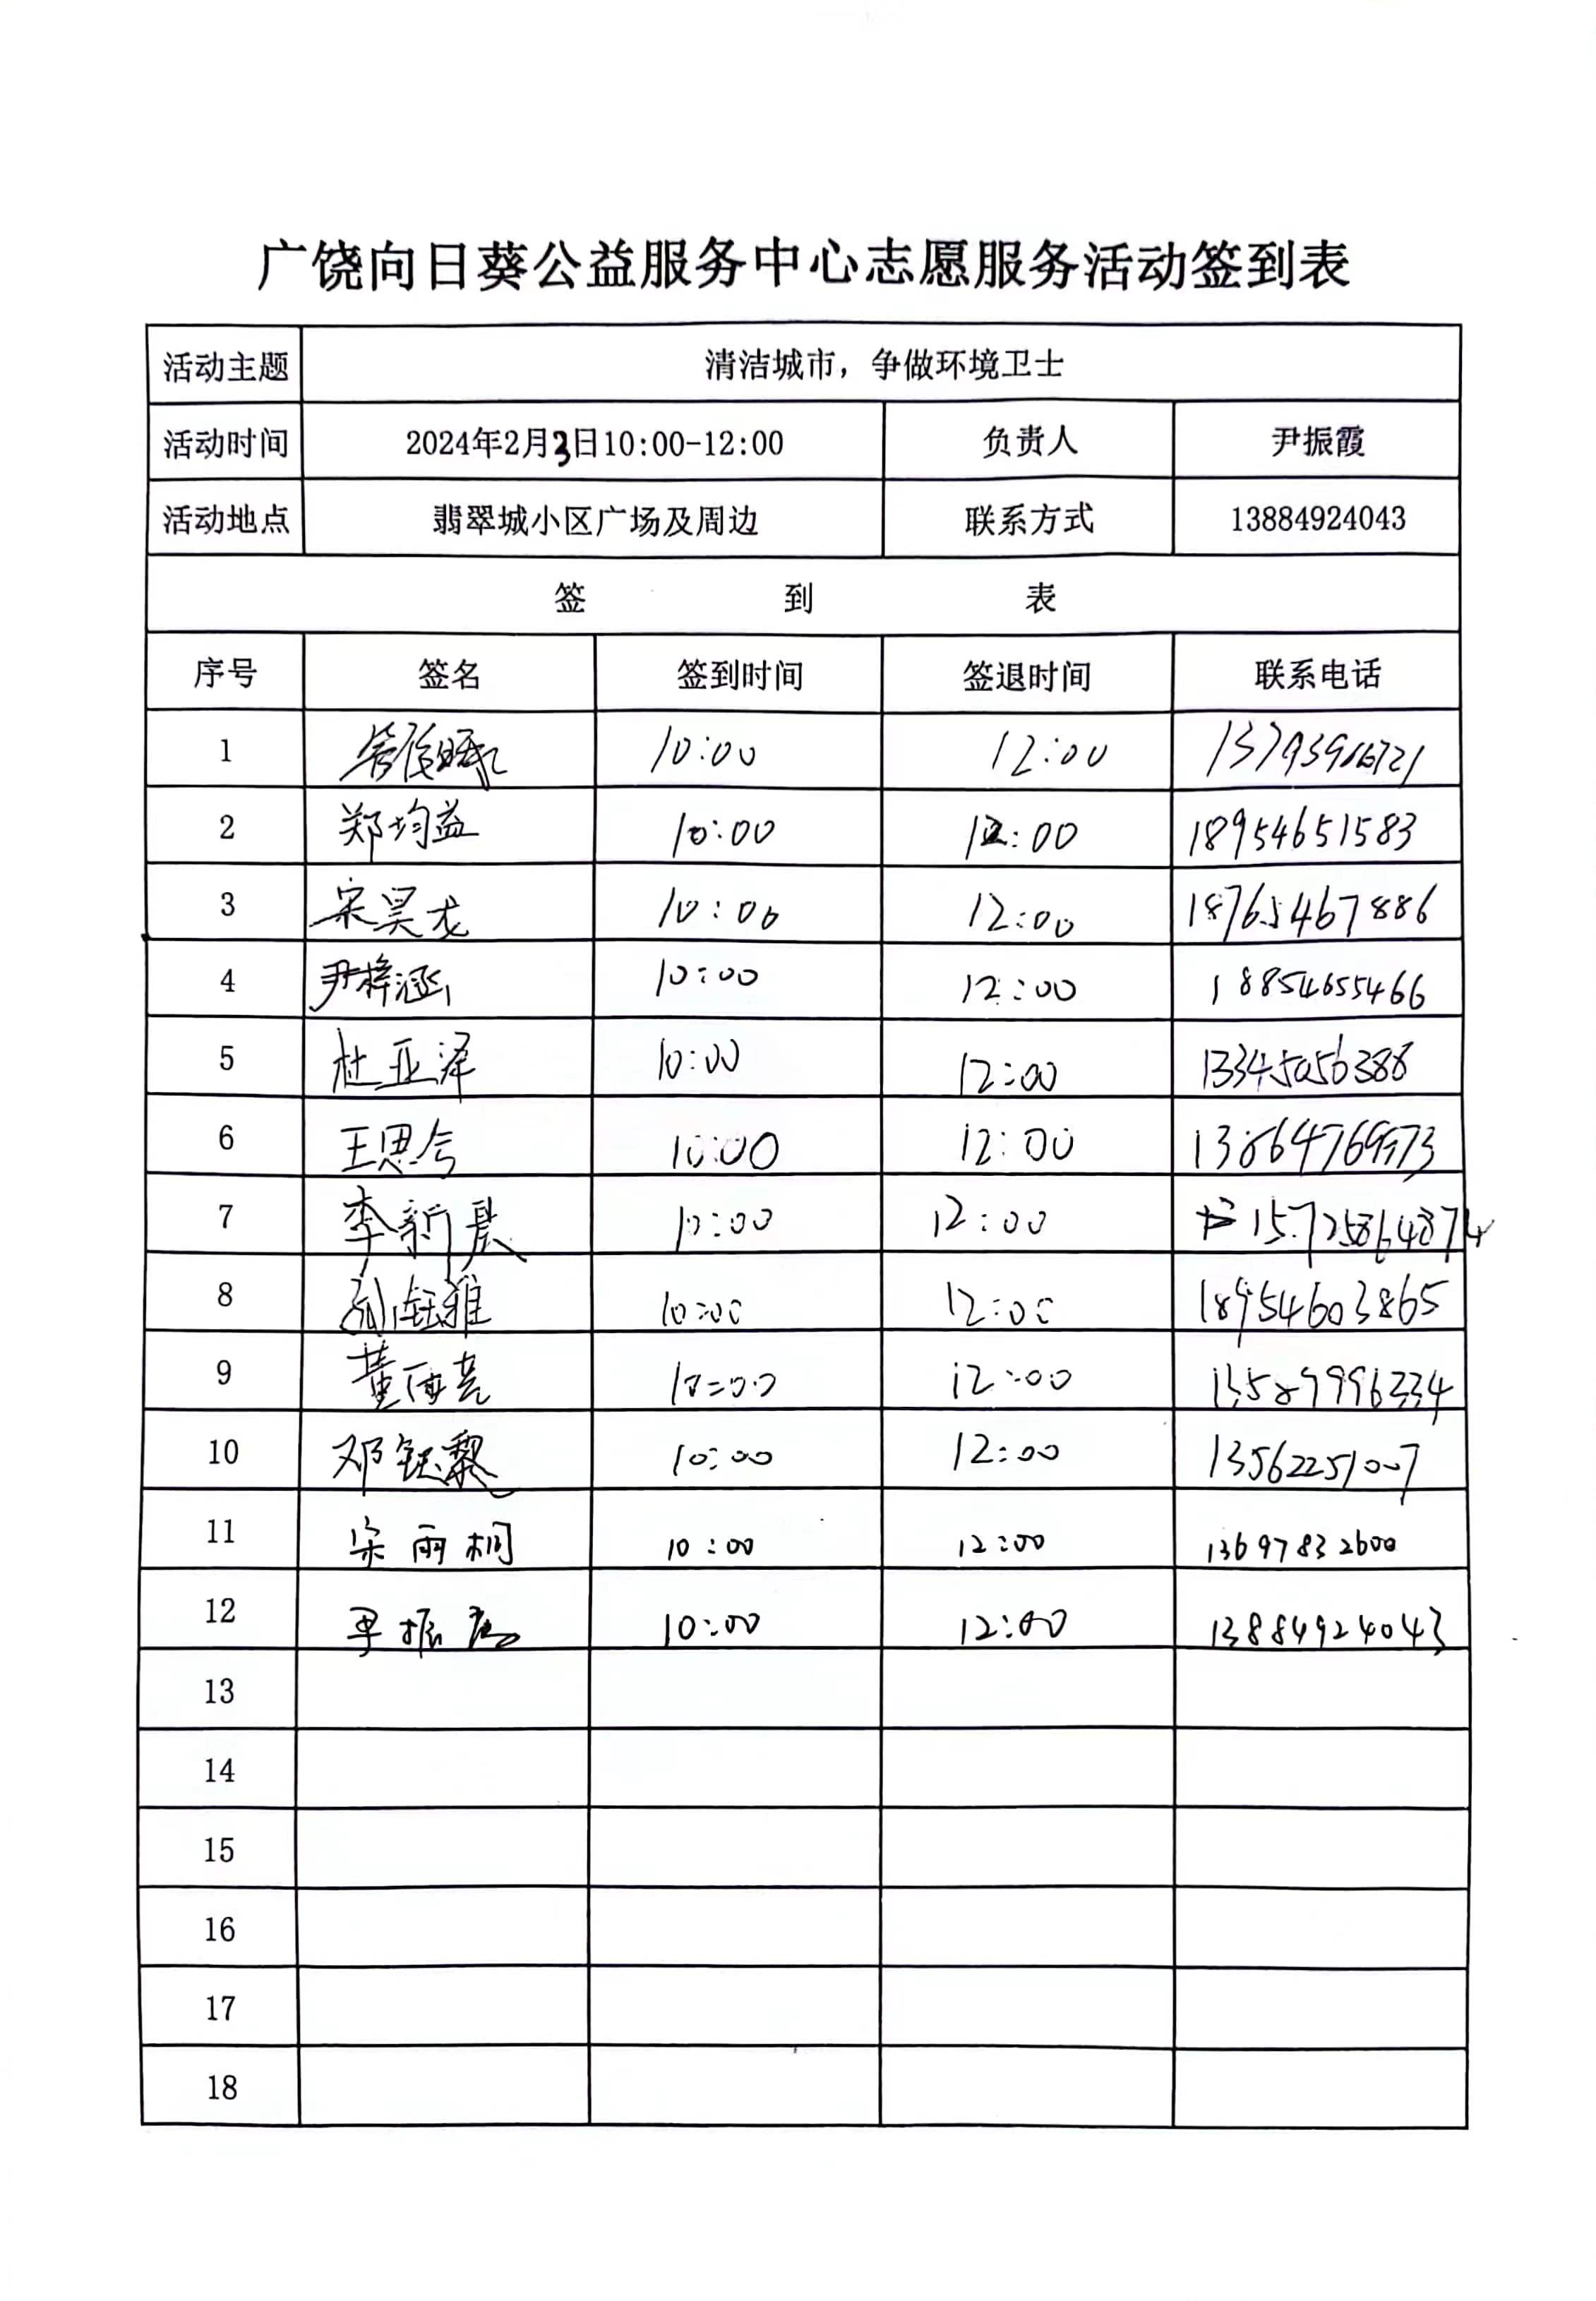 广饶向日葵公益服务中心志愿服务活动签到表
活动主题 清洁城市，争做环境卫士
活动时间 2024年2月3日10:00-12:00 负责人 尹振霞
活动地点 翡翠城小区广场及周边 联系方式 13884924043
签 到 表
序号 签名 签到时间 签退时间 联系电话
1 10:00 12:00
2 郑均益 10:00 12:00 18954651583
3 宋昊龙 10:00 12:00 18765467886
4 尹梓涵 10:00 12:00 18854655466
5 杜亚泽 10:00 12:00 13345056388
6 王思兮 10:00 12:00
7 李新晨 10:00 12:00 15725864874
8 孙钰雅 10:00 12:00 18954603865
9 10:00 12:00 13589996334
10 邓钰黎 10:00 12:00 13562251007
11 宋雨桐 10:00 12:00 13697832600
12 尹振霞 10:00 12:00 13884924043
13
14
15
16
17
18